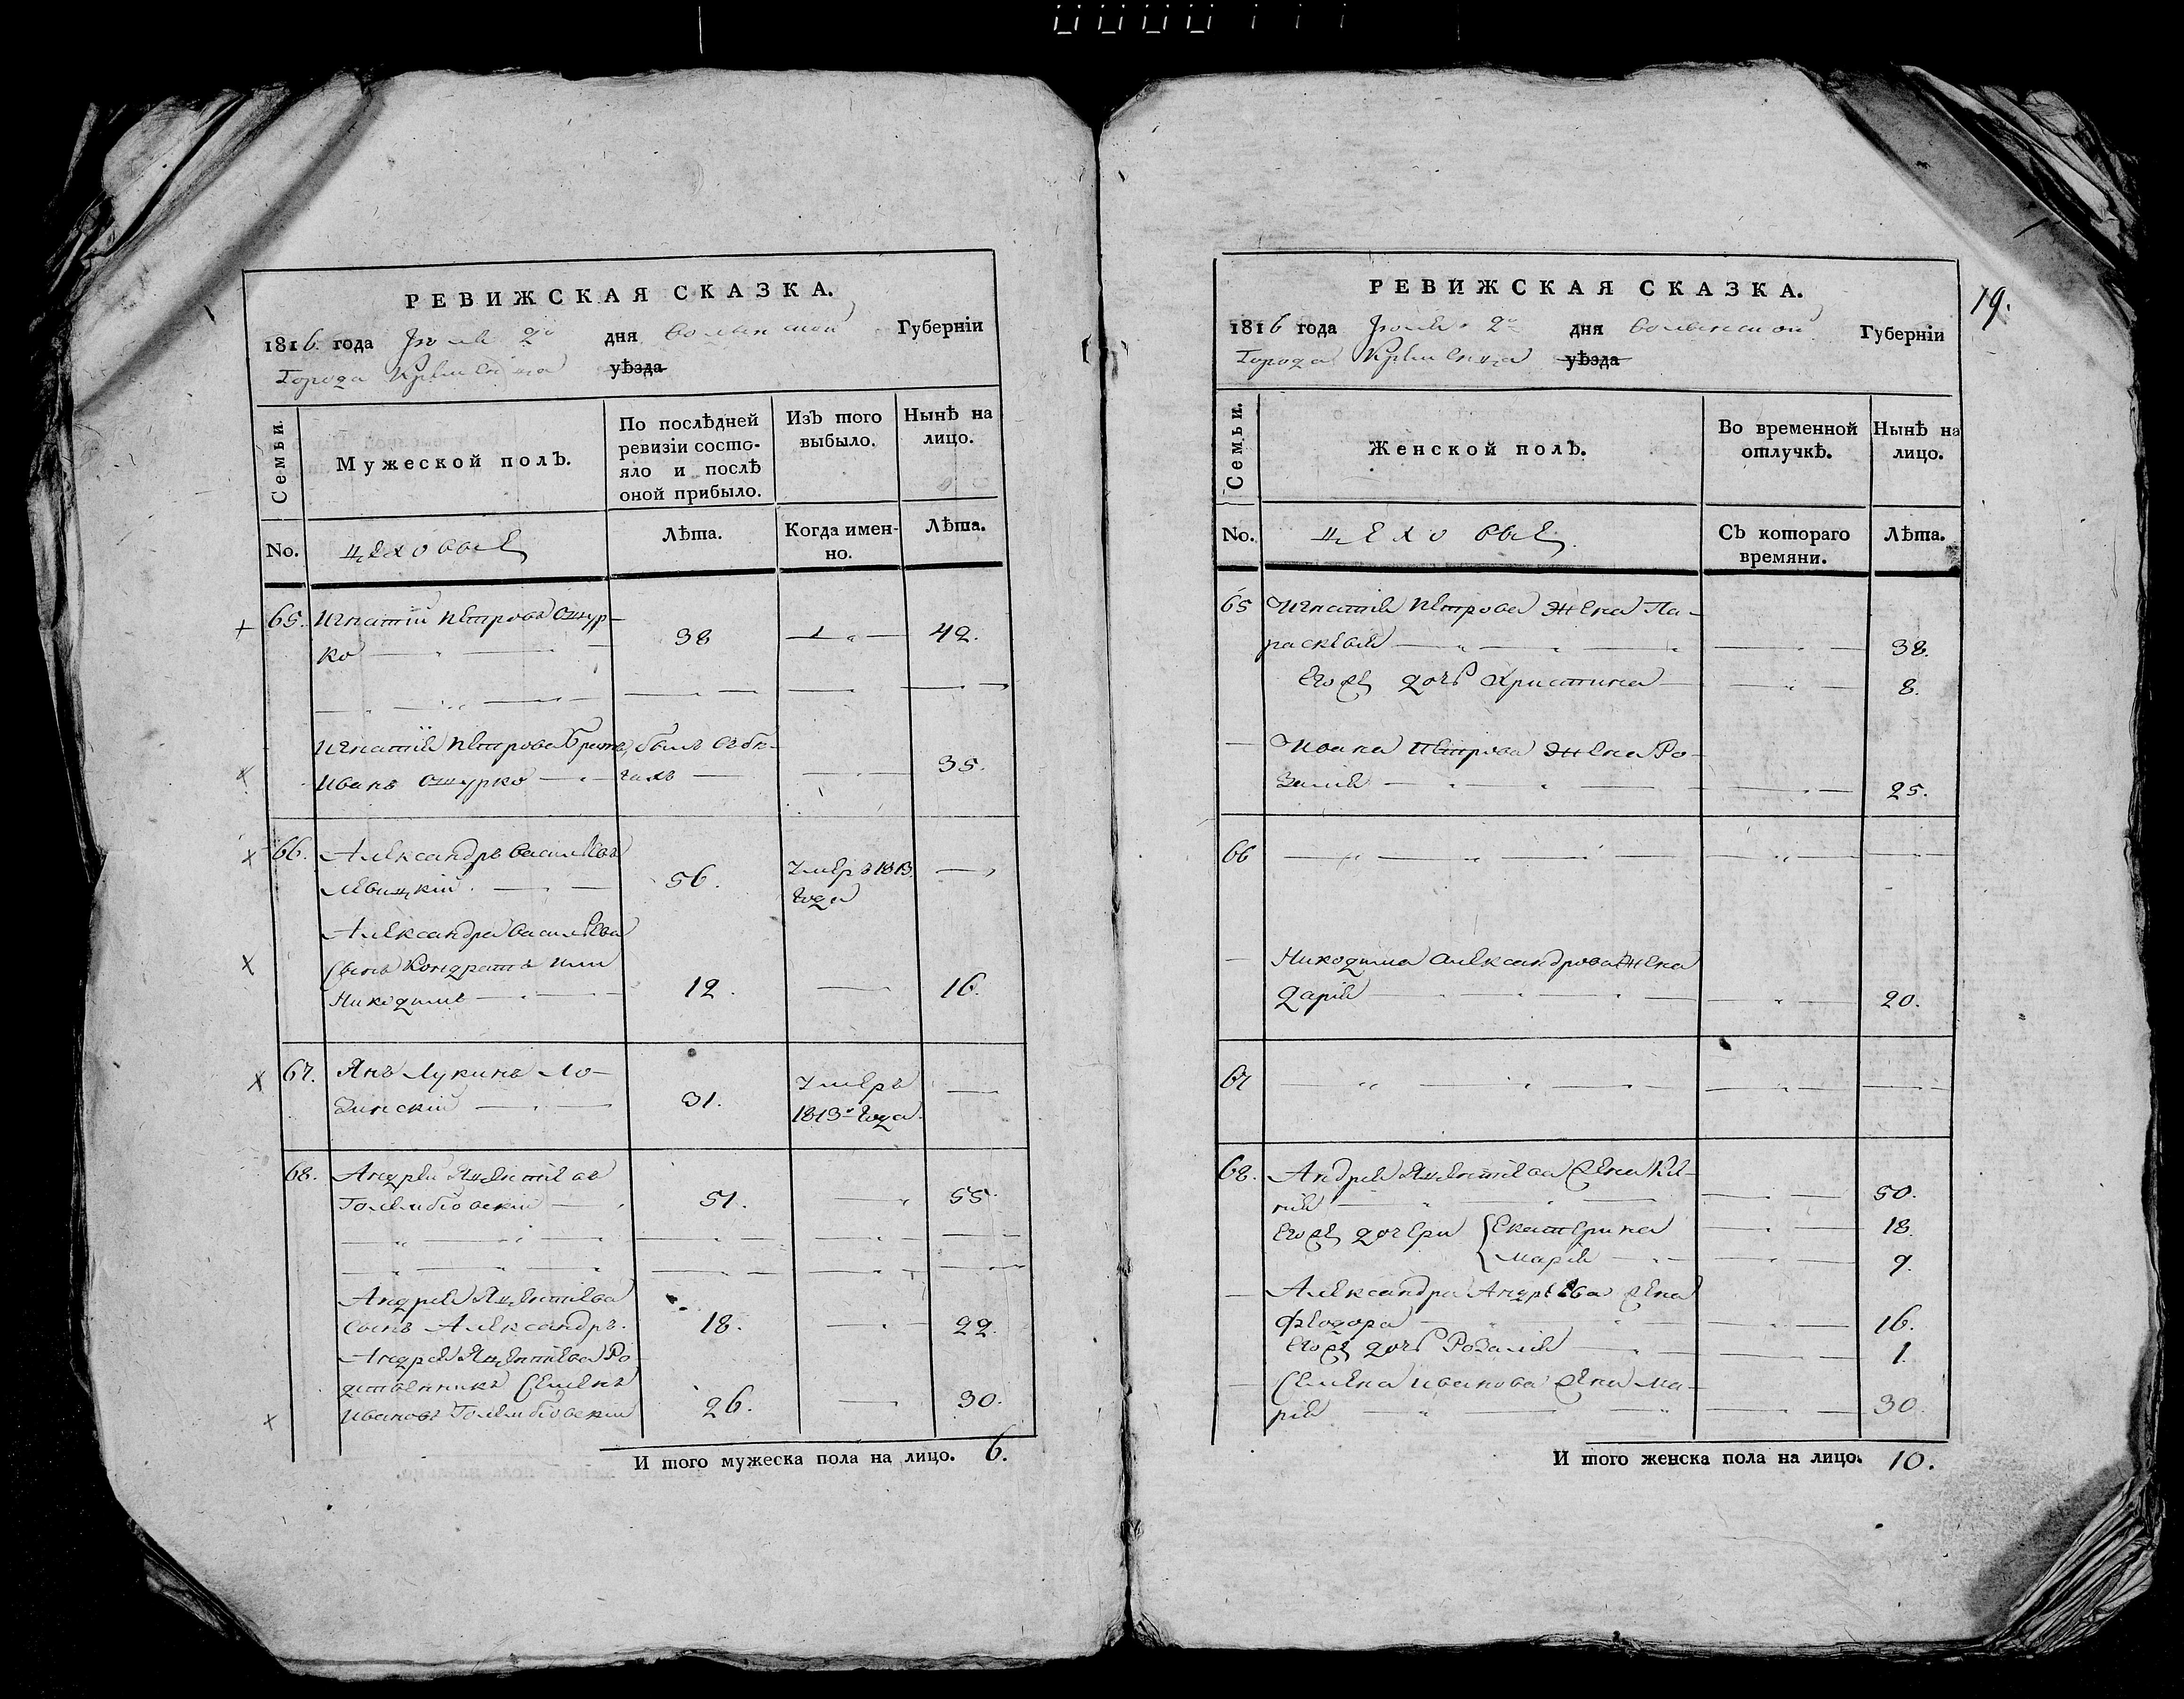 РЕВИЖСКАЯ СКАЗКА.
1816 года Іюля 2го дня Волынской Губерніи
Города Кремѣнца уѣзда
Семьи.
Мужеской полъ.
По послѣдней ревизіи состо-
яло и послѣ
оной прибыло.
Изъ того
выбыло.
Нынѣ на
лицо.
No.
цеховые
Лѣта.
Когда имен-
но.
Лѣта.
65. Игнатій Петровъ Ошур-
ко 38 42.
Игнатія Петрова братъ, былъ въ бѣ-
Иванъ Ошурко гахъ 35.
66. Александръ Васильевъ
Левицкій 56. Умеръ 1813.
года
Александра Васильева
Сынъ Кондратъ или
Никодимъ 12. 16.
67. Янъ Лукинъ Ло-
зинскій 31. Умеръ
1813го года
68. Андрей Яцентіевъ
Голембіовскій 51. 55.
Андрея Яцентіева
Сынъ Александръ. 18. 22.
Андрея Яцентіева Ро-
дственникъ Семенъ
Ивановъ Голембіовскій 26. 30.
И того мужеска пола на лицо. 6.
19.
РЕВИЖСКАЯ СКАЗКА.
1816 года Іюля 2го дня Волынской Губерніи
Города Кремѣнца уѣзда
Семьи.
Женской полъ.
Во временной
отлучкѣ.
Нынѣ на
лицо.
No.
цеховые
Съ котораго
времяни.
Лѣта.
65 Игнатія Петрова жена Па-
раскевія 38.
Егоже дочь Христина 8.
Ивана Петрова жена Ро-
залія 25.
66
Никодима Александрова жена
Дарія 20.
67
68. Андрея Яцентіева жена
50.
Егоже дочери Екатерина 18.
Марія 9.
Александра Андреева жена
Феодора 16.
Егоже дочь Розалія 1.
Семена Иванова жена Ма-
рія 30.
И того женска пола на лицо. 10.